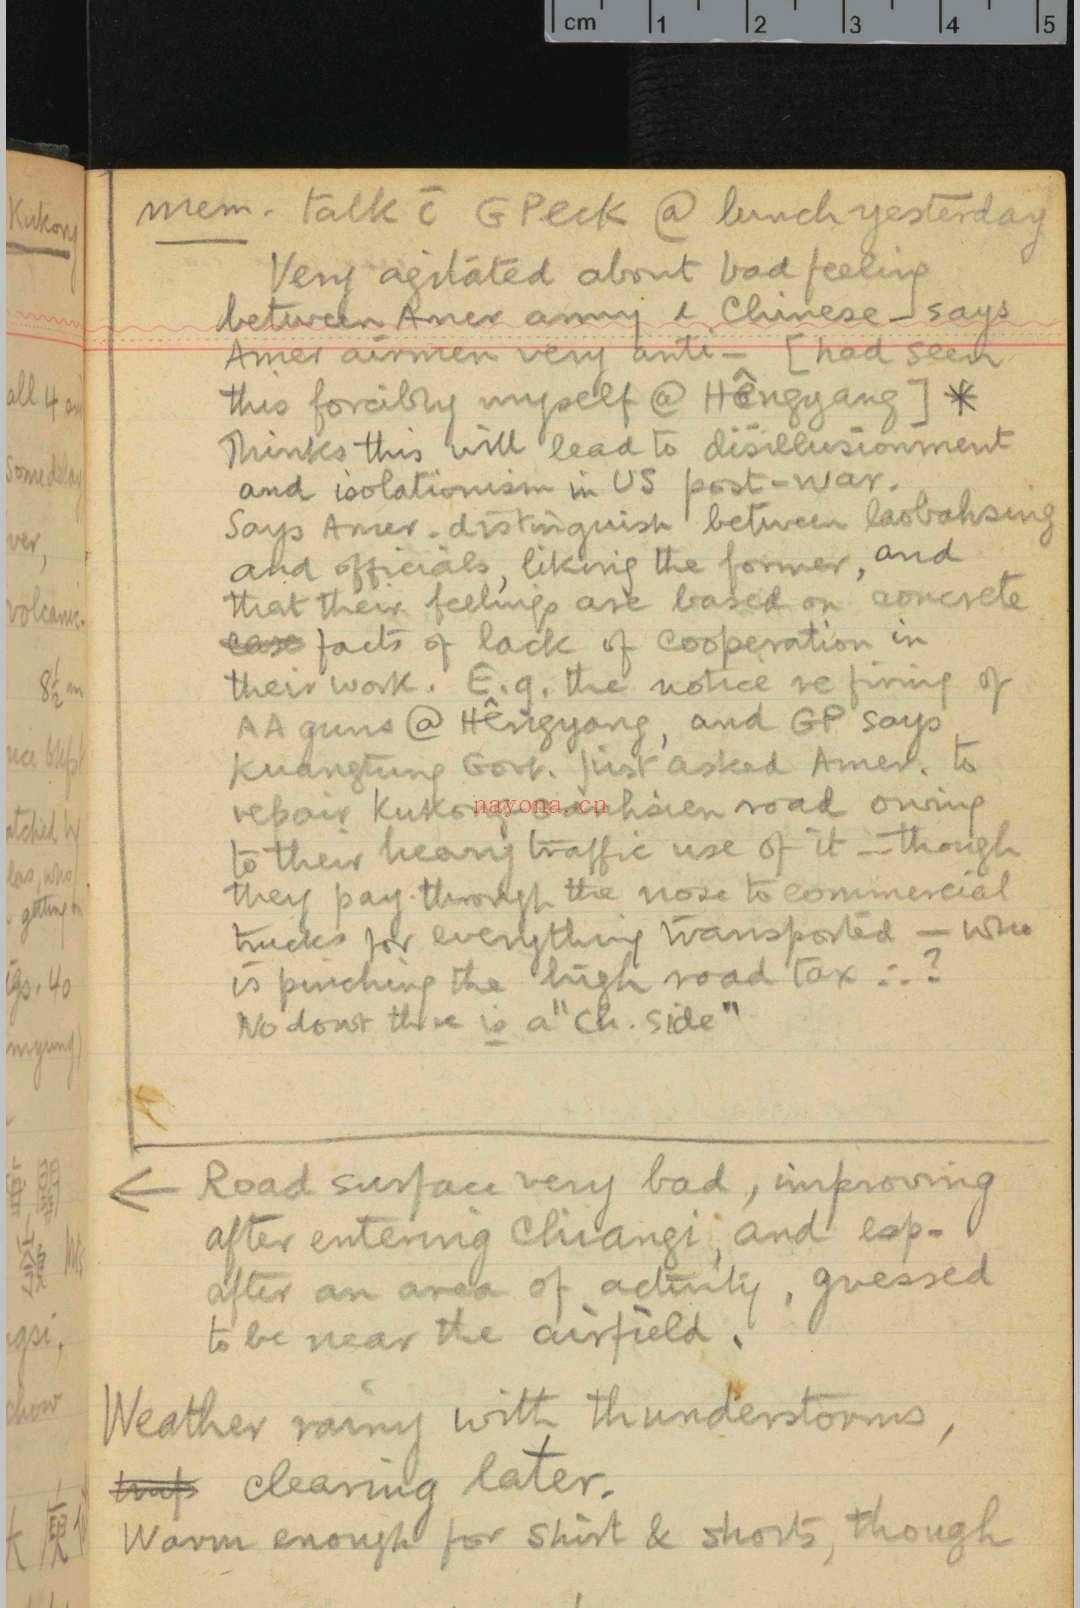 cm 1 2 3 4 5
mem. talk c̄ GPeck @ lunch yesterday
Very agitated about bad feeling
between Amer army & Chinese – says
Amer airmen very anti – [had seen
this forcibly myself @ Hêngyang] *
Thinks this will lead to disillusionment
and isolationism in US post-war.
Says Amer. distinguish between laobahsing
and officials, liking the former, and
that their feelings are based on concrete
case facts of lack of cooperation in
their work. E.g. the notice re firing of
AA guns @ Hêngyang, and GP says
Kuangtung Govt. just asked Amer. to
repair Kukong road owing
nayona.cn
to their heavy traffic use of it – though
they pay through the nose to commercial
trucks for everything transported – who
is pinching the high road tax ∴?
No doubt there is a "Ch. side"
← Road surface very bad, improving
after entering Chiangi, and esp.
after an area of activity, guessed
to be near the airfield.
Weather rainy with thunderstorms,
clearing later.
Warm enough for shirt & shorts, though
Kukong
all 4
some delay
ver,
volcanic
8½ am
atched by
getting on
igs. 40
gsi,
chow
大庾